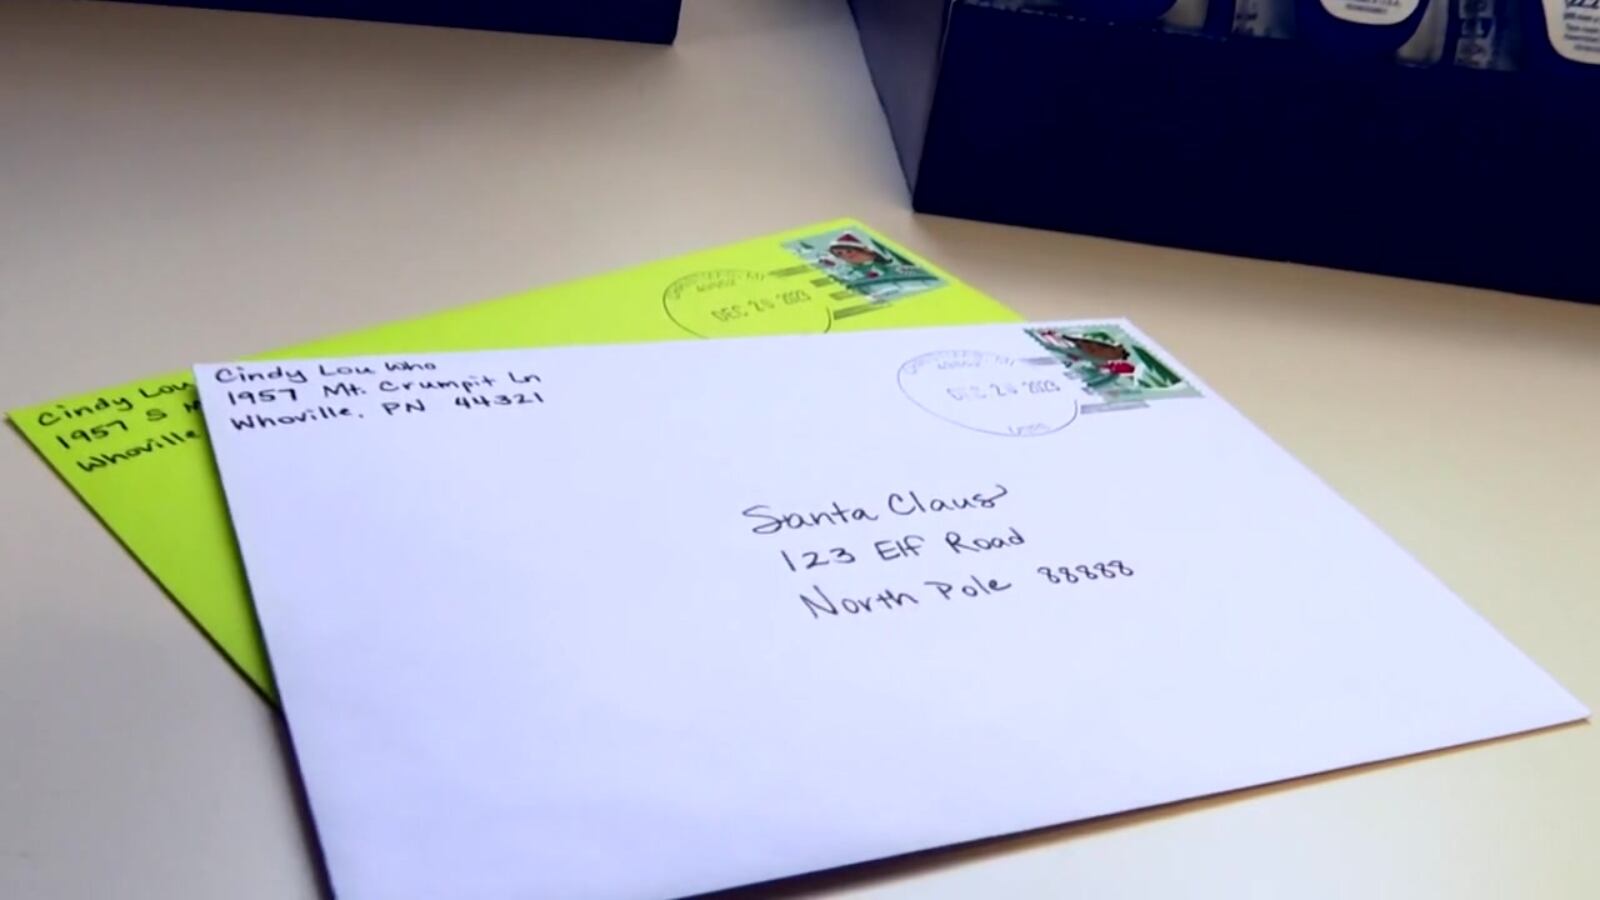 Cindy Lou Who
1957 Mt. Crumpit Ln
Whoville, PN 44321
DEC 2 2023
Santa Claus
123 Elf Road
North Pole 88888
Cindy Lou
1957 S
Whoville
DEC 2 2023